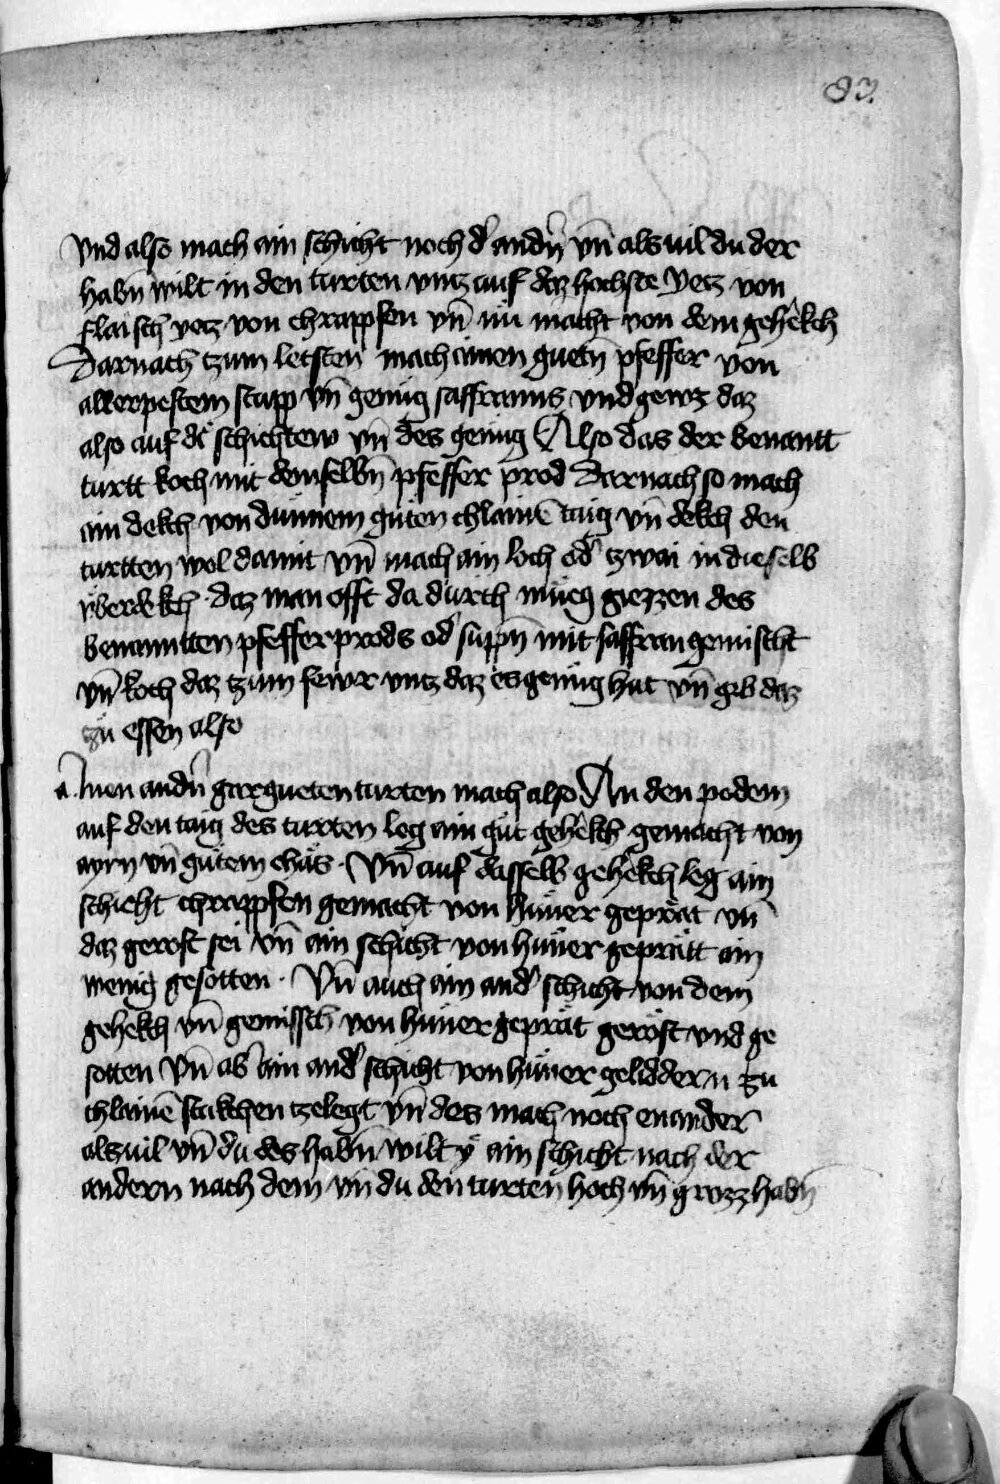 83.
vnd also mach ain schicht noch d' andn̄ vn̄ alsuil du der
habn̄ wilt in den turten vntz auf daz hochste yetz von
flaisch yetz von chrappfen vn̄ nu macht von dem gehekch
Darnach tzum letsten mach ainen guetn̄ pfeffer von
allerpestem stupp vn̄ genug saffranns vnd gewrz daz
also auf di schichten vn̄ des genug Also das der benantt
turtt koch mit demselbn̄ pfeffer prod Darnach so mach
ain dekch von dünnem guten chlainē taig vn̄ dekch den
turtten wol damit vn̄ mach ain loch od' tzwai in dieselb
vberdekch daz man offt da durch müeg giezzen des
benanntten pfefferprods od' suppn̄ mit saffran gemischt
vn̄ koch daz tzum fewr vntz daz es genug hat vn̄ gib daz
zu essen also
a Inen andn̄ gar gueten turten mach also An den podem
auf den taig des turten leg ain gut gehekch gemacht von
ayrn vn̄ gutem chäs · Vn̄ auf dasselb gehekch leg ain
schicht chrappfen gemacht von hüner geprät vn̄
daz gerost sei vn̄ ain schicht von hüner geprätt ain
wenig gesotten · Vn̄ auch ain and' schicht von dem
gehekch vn̄ gemissch von hüner geprät geröst vnd ge
sotten Vn̄ ab' ain and' schicht von hüner geliddern zu
chlainē stukchen tzelegt vn̄ des mach noch enander
alsuil vn̄ du des habn̄ wilt y ain schicht nach der
andern nach dem vn̄ du den turten hoch vn̄ grozz habn̄